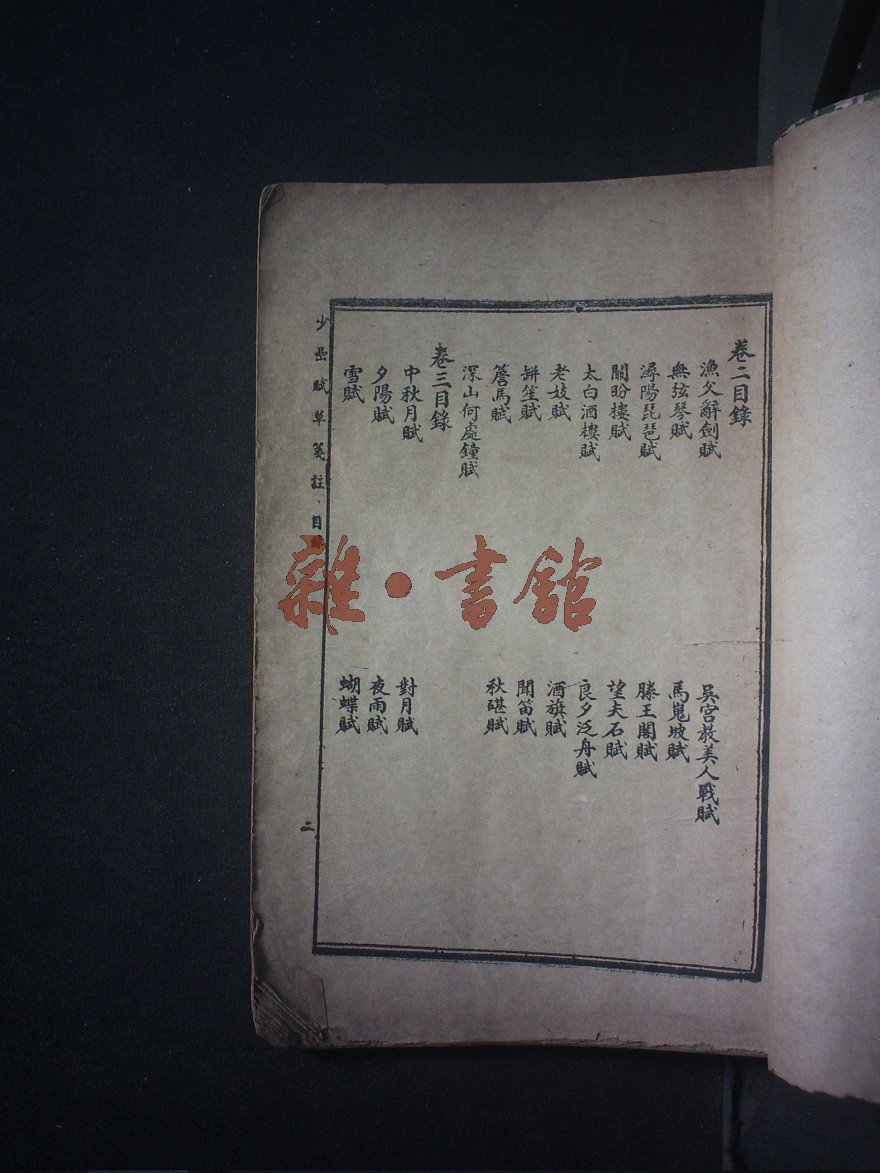 卷二目錄
漁父辭劍賦 吳宮教美人戰賦
無弦琴賦 馬嵬坡賦
潯陽琵琶賦 滕王閣賦
關盼樓賦 望夫石賦
太白酒樓賦 良夕泛舟賦
老妓賦 酒旗賦
缾笙賦 聞笛賦
簷馬賦 秋碪賦
深山何處鐘賦
卷三目錄
中秋月賦 對月賦
夕陽賦 夜雨賦
雪賦 蝴蝶賦
少嵒賦草箋註、目錄 二
雜·書館